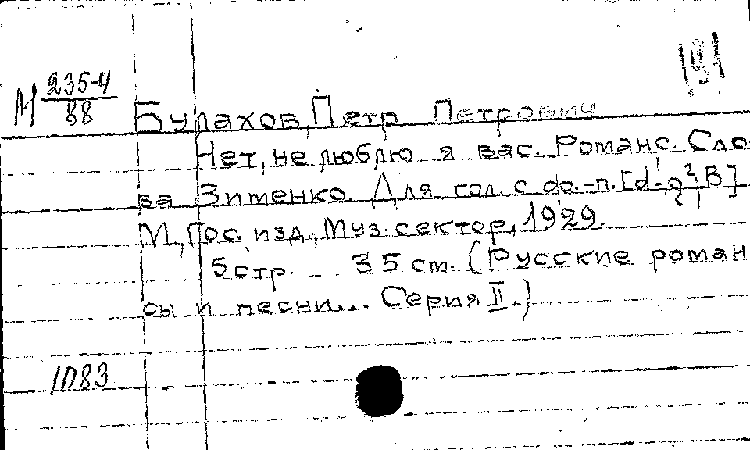 191
М 235-4
88
Булахов, Петр Петрович
Нет, не люблю я вас. Романс. Сло-
ва Зименко Для гол. с ф.-п.
М., Гос. изд., Муз. сектор, 1929.
5 стр. 35 см. (Русские роман
сы и песни... Серия II.)
1083